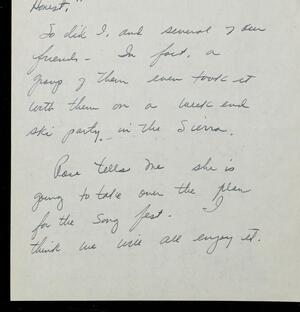 Honest,"
So did I, and several of our
friends - In fact, a
group of them even took it
with them on a week end
ski party in the Sierra.
Rose tells me she is
going to take over the plan
for the Song fest. I
think we will all enjoy it.